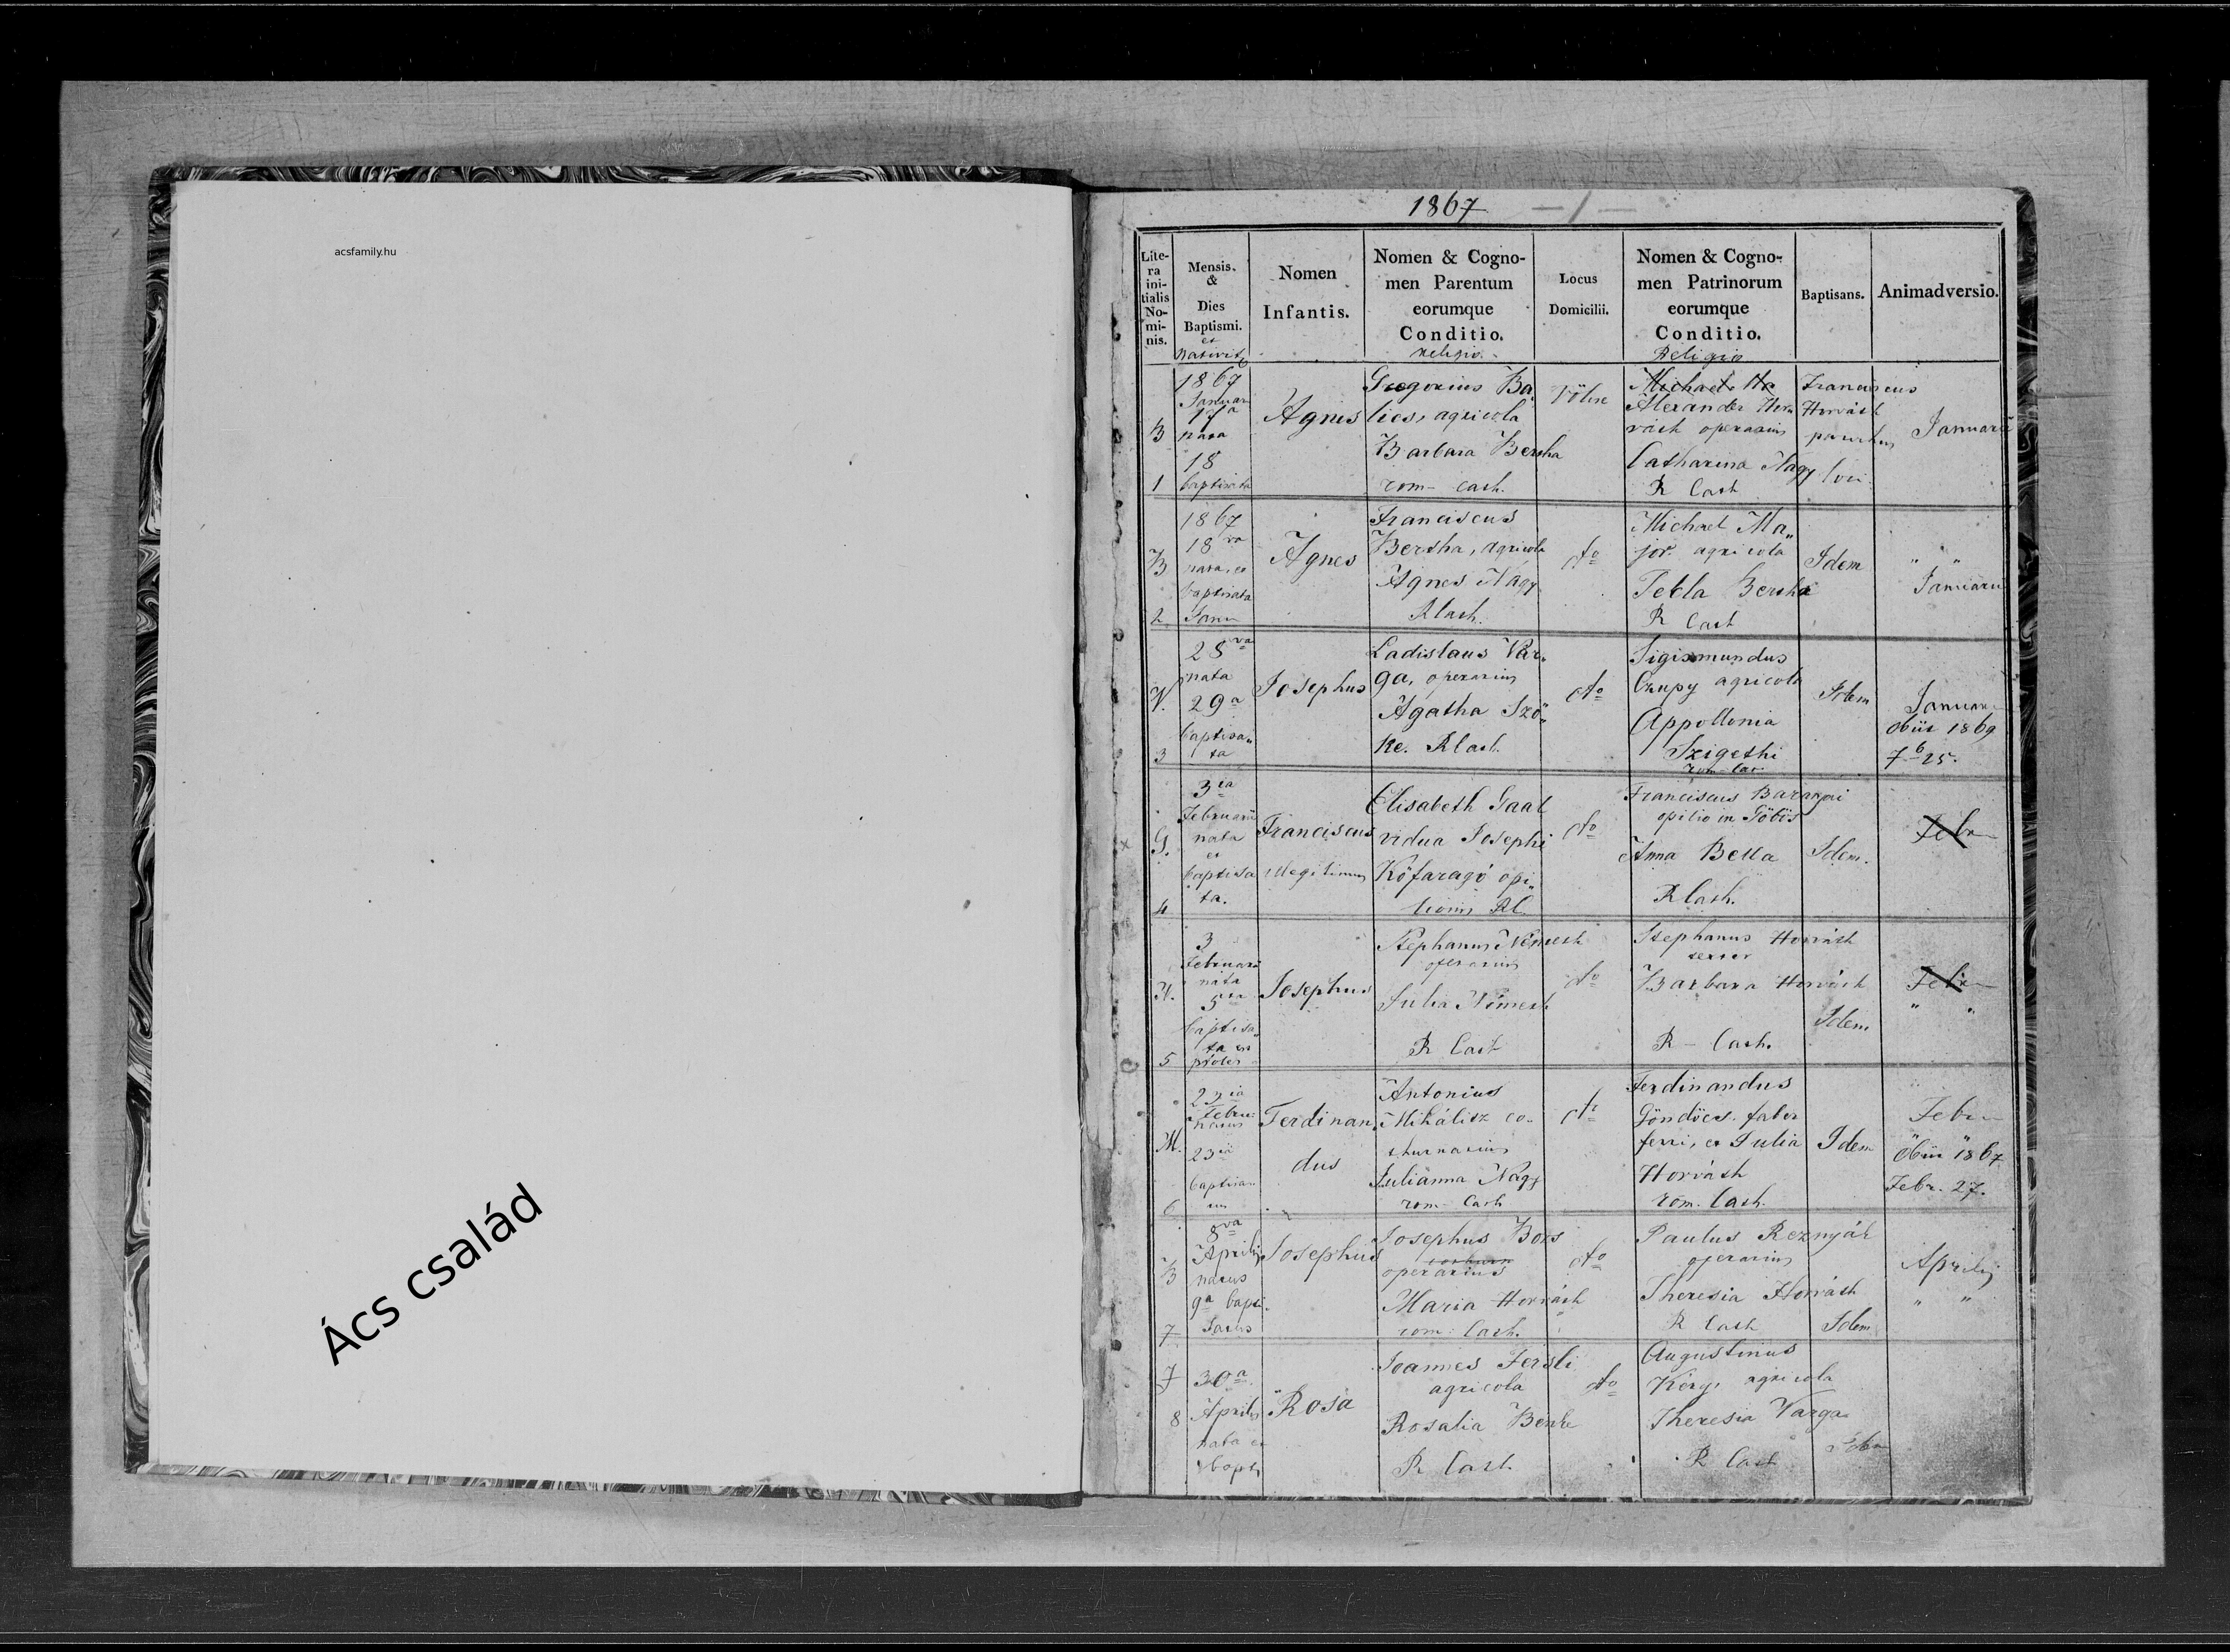 acsfamily.hu
Ács család
1867 — 1 —
Lite-
ra
ini-
tialis
No-
mi-
nis.
Mensis.
&
Dies
Baptismi.
et
Nomen
Infantis.
Nomen & Cogno-
men Parentum
eorumque
Conditio.
Religio.
Locus
Domicilii.
Nomen & Cogno-
men Patrinorum
eorumque
Conditio.
Religio
Baptisans.
Animadversio.
B
1
1867
Januar
17a
nata
18
baptisata
Agnes
Gregorius Ba
lics, agricola
Barbara Bersha
rom- cath.
Michael Ho
Alexander Hor
váth operarius
Catharina Nagy
R Cath
Franciscus
Horváth
loci
Januarii
B
2
1867
18va
nata, et
baptisata
Janu
Agnes
Franciscus
Bersha, agricola
Agnes Nagy
R Cath.
dto
Michael Ma„
jor agricola
Tekla Bersha
R Cath
Idem
" "
Januarii
V.
3
28va
nata
29a
baptisa„
ta
Josephus
Ladislaus Var„
ga, operarius
Agatha Sző„
ke. R Cath.
dto
Sigismundus
Czupy agricola
Appollonia
Szigethi
rom Cat
Idem
Januari
obiit 1869
7b 25.
G.
4
3ia
Februarii
nata
et
baptisa
ta.
Franciscus
illegitimus
Elisabeth Gaal
vidua Josephi
Kőfaragó opi„
lionis RC.
dto
Franciscus Baranyai
opilio in Göbös
Anna Bella
R Cath.
Idem.
Febr
N.
5
3
Februarii
nata
5ta
baptisa„
ta est
proles
Josephus
Stephanus Németh
operarius
Julia Németh
R Cath
dto
Stephanus Horváth
textor
Barbara Horváth
R - Cath.
Idem
Febr
" "
M.
6
23ia
Febru
natus
23ia
Ferdinan„
dus
Antonius
Mihálicz co„
thurnarius
Julianna Nagy
rom- Cath
dto
Ferdinandus
Göndöcs. faber
ferri, et Julia
Horváth
rom. Cath.
Idem
Febr
Obiit 1867
Febr. 27.
B
7
8va
Aprilis
natus
9a bapti„
satus
Josephus
Josephus Bors
operarius
Maria Horváth
rom: Cath.
dto
Paulus Reznyák
operarius
Theresia Horváth
R Cath
Idem
Aprilis
" "
F
8
30a
Aprilis
nata et
bapti
Rosa
Joannes Fersli
agricola
Rosalia Benke
R Cath
dto
Augustinus
Kéry agricola
Theresia Varga
R Cath
Idem